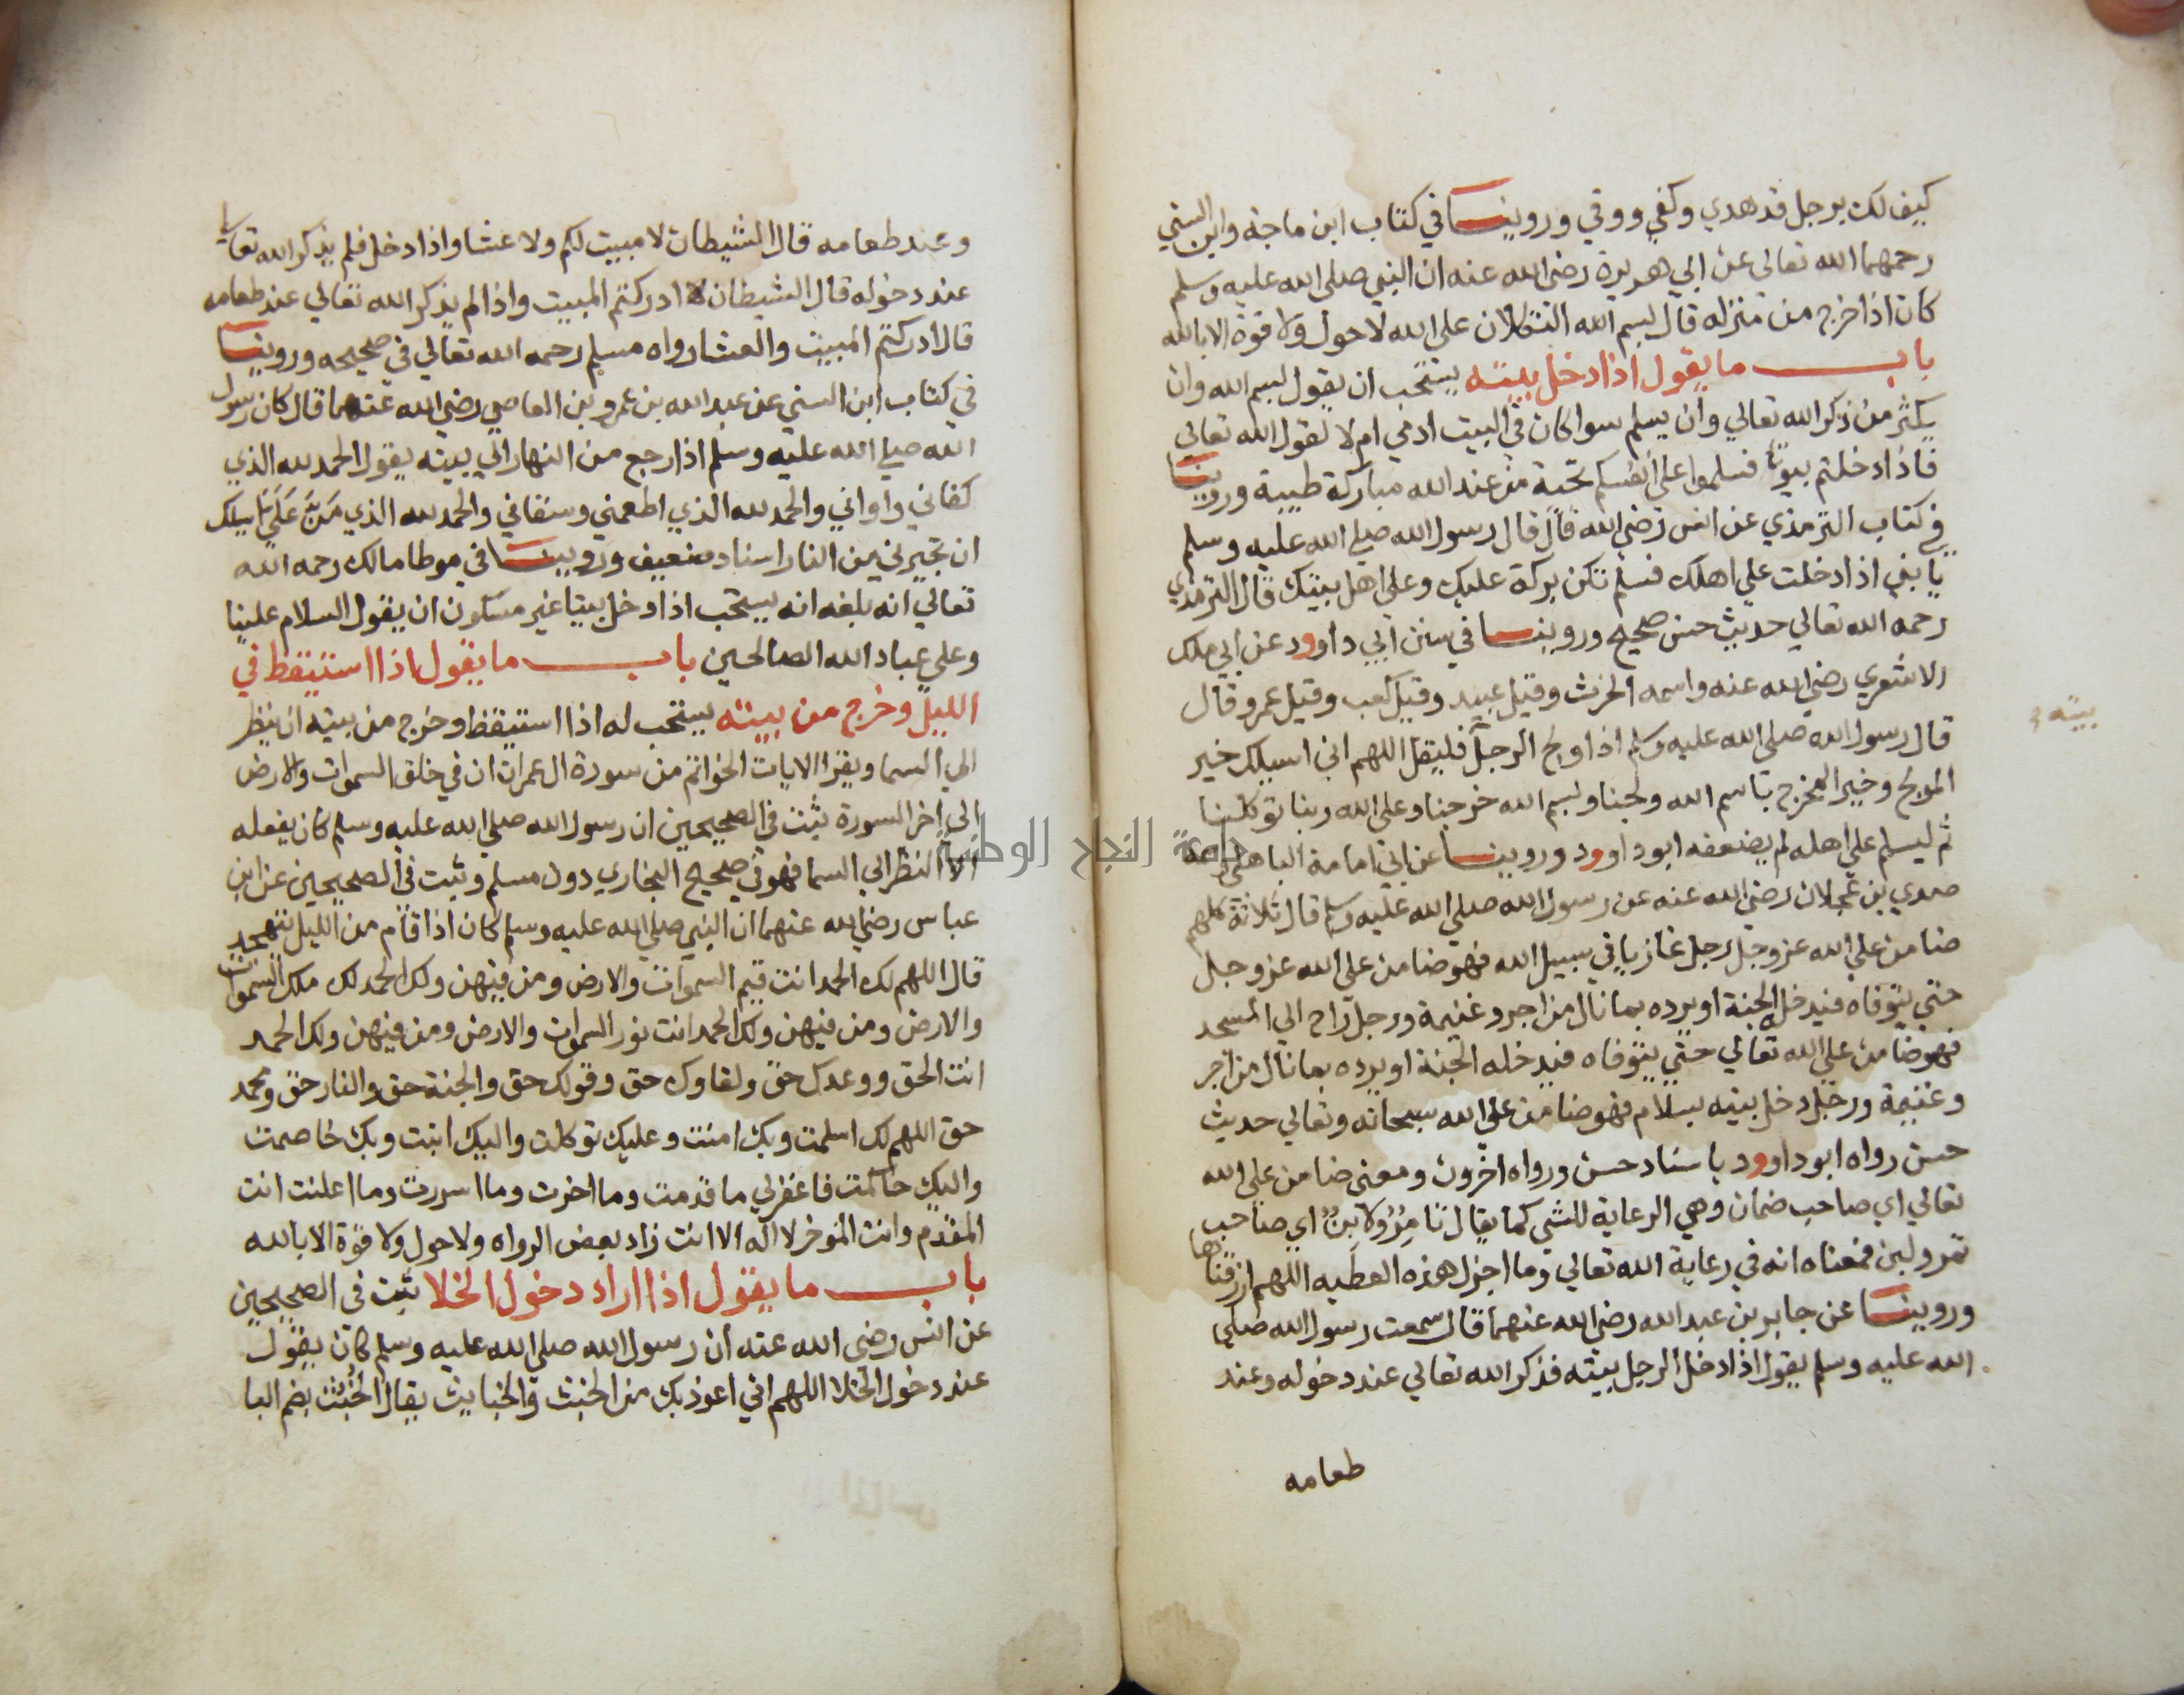 كيف لك برجل قد هدي وكفي ووقي وروينا في كتاب ابن ماجة وابن السني
رحمهما الله تعالى عن ابي هريرة رضي الله عنه ان النبي صلى الله عليه وسلم
كان اذا خرج من منزله قال بسم الله التكلان على الله لا حول ولا قوة الا بالله
باب ما يقول اذا دخل بيته يستحب ان يقول بسم الله وان
يكثر من ذكر الله تعالي وان يسلم سوا كان في البيت ادمي ام لا لقول الله تعالي
فاذا دخلتم بيوتا فسلموا على انفسكم تحية من عند الله مباركة طيبة وروينا
في كتاب الترمذي عن انس رضي الله قال قال رسول الله صلي الله عليه وسلم
يا بني اذا دخلت علي اهلك فسلم تكن بركة عليك وعلى اهل بيتك قال الترمذي
رحمه الله تعالي حديث حسن صحيح وروينا في سنن ابي داوود عن ابي ملك
الاشعري رضي الله عنه واسمه الحرث وقيل عبيد وقيل كعب وقيل عمرو قال
بيته
قال رسول الله صلى الله عليه وسلم اذا ولج الرجل فليقل اللهم اني اسيلك خير
المولج وخير المخرج باسم الله ولجنا وبسم الله خرجنا وعلى الله ربنا توكلنا
ثم ليسلم علي اهله لم يضعفه ابو داوود وروينا عن ابي امامة الباهلي
صدي بن عجلان رضي الله عنه عن رسول الله صلى الله عليه وسلم قال ثلاثة كلهم
ضامن علي الله عز وجل رجل غازيا في سبيل الله فهو ضامن على الله عز وجل
حتي يتوفاه فيدخل الجنة او يرده بما نال من اجر وغنيمة ورجل راح الي المسجد
فهو ضامن على الله تعالي حتي يتوفاه فيدخله الجنة او يرده بما نال من اجر
وغنيمة ورجل دخل بيته بسلام فهو ضامن علي الله سبحانه وتعالي حديث
حسن رواه ابو داوود باسناد حسن ورواه اخرون ومعنى ضامن علي الله
تعالي اي صاحب ضمان وهي الرعاية للشي كما يقال تامر ولابن اي صاحب
تمر ولبن فمعناه انه في رعاية الله تعالي وما اجزل هذه العطيه اللهم ارزقناها
وروينا عن جابر بن عبد الله رضي الله عنهما قال سمعت رسول الله صلى
الله عليه وسلم يقول اذا دخل الرجل بيته فذكر الله تعالي عند دخوله وعند
طعامه
وعند طعامه قال الشيطان لا مبيت لكم ولا عشا واذا دخل فلم يذكر الله تعالي
عند دخوله قال الشيطان ادركتم المبيت واذا لم يذكر الله تعالي عند طعامه
قال ادركتم المبيت والعشا رواه مسلم رحمه الله تعالي في صحيحه وروينا
في كتاب ابن السني عن عبد الله بن عمرو بن العاصي رضي الله عنهما قال كان رسول
الله صلي الله عليه وسلم اذا رجع من النهار الي بيته يقول الحمد لله الذي
كفاني واواني والحمد لله الذي اطعمني وسقاني والحمد لله الذي من علي اسيلك
ان تجيرني من النار اسناد ضعيف وروينا في موطا مالك رحمه الله
تعالي انه بلغه انه يستحب اذا دخل بيتا غير مسكون ان يقول السلام علينا
وعلي عباد الله الصالحين باب ما يقول اذا استيقظ في
الليل وخرج من بيته يستحب له اذا استيقظ وخرج من بيته ان ينظر
الي السما ويقرا الايات الخواتم من سورة ال عمران ان في خلق السموات والارض
الي اخر السورة ثبت في الصحيحين ان رسول الله صلي الله عليه وسلم كان يفعله
الا النظر الي السما فهو في صحيح البخاري دون مسلم وثبت في الصحيحين عن ابن
عباس رضي الله عنهما ان النبي صلي الله عليه وسلم كان اذا قام من الليل يتهجد
قال اللهم لك الحمد انت قيم السموات والارض ومن فيهن ولك الحمد لك ملك السموات
والارض ومن فيهن ولك الحمد انت نور السموات والارض ومن فيهن ولك الحمد
انت الحق ووعدك حق ولقاوك حق وقولك حق والجنة حق والنار حق ومحمد
حق اللهم لك اسلمت وبك امنت وعليك توكلت واليك انبت وبك خاصمت
واليك حاكمت فاغفر لي ما قدمت وما اخرت وما اسررت وما اعلنت انت
المقدم وانت الموخر لا اله الا انت زاد بعض الرواه ولا حول ولا قوة الا بالله
باب ما يقول اذا اراد دخول الخلا ثبت في الصحيحين
عن انس رضي الله عنه ان رسول الله صلي الله عليه وسلم كان يقول
عند دخول الخلا اللهم اني اعوذ بك من الخبث والخبايث يقال الخبث بضم البا
جامعة النجاح الوطنية